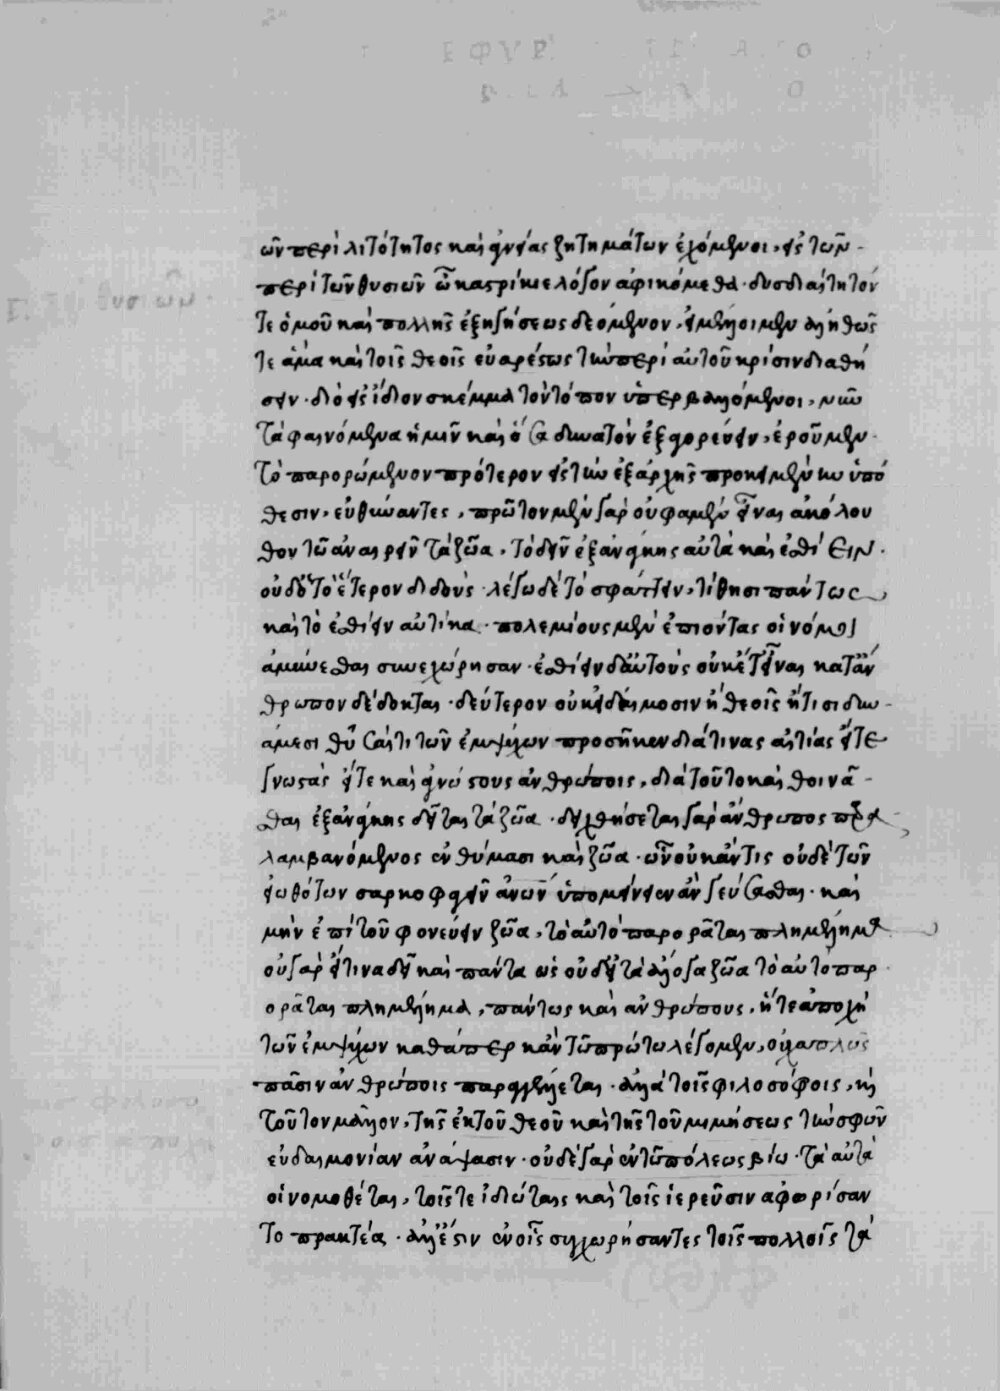 ῶν περὶ λιτότητος καὶ ἁγνείας ζητημάτων ἐχόμενοι, εἰς τῶν
περὶ τῶν θυσιῶν ὦ καστρίκιε λόγον ἀφικόμεθα · δυσδιαίτητόν
τε ὁμοῦ καὶ πολλῆς ἐξηγήσεως δεόμενον, εἰ μέλλοιμεν ἀληθῶς
τε ἅμα καὶ τοῖς θεοῖς εὐαρέστως τὴν περὶ αὐτοῦ κρίσιν διαθή
σειν · διὸ εἰς ἴδιον σκέμμα τὸν τόπον ὑπερβαλλόμενοι, νῦν
τὰ φαινόμενα ἡμῖν καὶ ὅσα δυνατὸν ἐξαγορεύειν, ἐροῦμεν
τὸ παρορώμενον πρότερον εἰς τὴν ἐξ ἀρχῆς προκειμένην ὑπό
θεσιν, εὐθύναντες, πρῶτον μὲν γὰρ οὔ φαμεν εἶναι ἀκόλου
θον τῶ ἀναιρεῖν τὰ ζῶα, τὸ δεῖν ἐξανάγκης αὐτὰ καὶ ἐσθίειν ·
οὐδ' ὁ τὸ ἕτερον διδούς · λέγω δὲ τὸ σφάττειν, τίθησι πάντως
καὶ τὸ ἐσθίειν αὐτίκα · πολεμίους μὲν ἐπιόντας οἱ νόμοι
ἀμύνεσθαι συνεχώρησαν · ἐσθίειν δ' αὐτοὺς οὐκέτ' εἶναι κατ' ἄν
θρωπον δέδοκται · δεύτερον οὐκ εἰ δαίμοσιν ἢ θεοῖς ἤ τισι δυν
άμεσι θῦσαί τι τῶν ἐμψύχων προσῆκεν διά τινας αἰτίας εἴτε
γνωστὰς εἴτε καὶ ἀγνώστους ἀνθρώποις, διὰ τοῦτο καὶ θοινᾶ
σθαι ἐξανάγκης δεῖται τὰ ζῶα · δειχθήσεται γὰρ ἄνθρωπος
λαμβανόμενος ἐν θύμασι καὶ ζῶα · ὧν οὐκ ἄν τις οὐδὲ τῶν
εἰωθότων σαρκοφαγεῖν ἀνῶν ὑπομείνειεν ἂν γεύσασθαι · καὶ
μὴν ἐπὶ τοῦ φονεύειν ζῶα, τὸ αὐτὸ παρορᾶται πλημμέλημα
οὐ γὰρ εἴ τινα δεῖ καὶ πάντα ὡς οὐδ' εἰ τὰ ἄλογα ζῶα τὸ αὐτὸ παρ
ορᾶται πλημμέλημα, πάντως καὶ ἀνθρώπους, ἥ τε ἀποχὴ
τῶν ἐμψύχων καθάπερ κἂν τῶ πρώτω λέγομεν, οὐχ ἁπλῶς
πᾶσιν ἀνθρώποις παραγγέλλεται · ἀλλὰ τοῖς φιλοσόφοις, καὶ
τούτων μᾶλλον, τῆς ἐκ τοῦ θεοῦ καὶ τῆς τοῦ μιμήσεως τὴν σφῶν
εὐδαιμονίαν ἀνάψασιν · οὐδὲ γὰρ ἐν τῶ πόλεως βίω · τὰ αὐτὰ
οἱ νομοθέται, τοῖς τε ἰδιώταις καὶ τοῖς ἱερεῦσιν ἀφωρίσαν
το πρακτέα · ἀλλ' ἔστιν ἐν οἷς συγχωρήσαντες τοῖς πολλοῖς τὰ